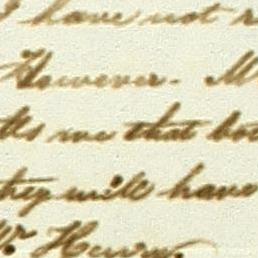 I have not r
However. M
lls me that bot
they will have
Mr Henry,